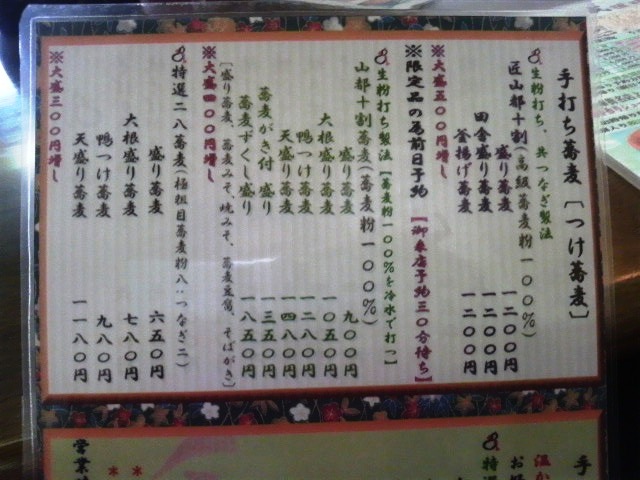 手打ち蕎麦〔つけ蕎麦〕
生粉打ち、共つなぎ製法
匠山都十割(高級蕎麦粉一〇〇%)
盛り蕎麦 一二〇〇円
田舎盛り蕎麦 一二〇〇円
釜揚げ蕎麦 一二〇〇円
※大盛五〇〇円増し
※限定品の為前日予約【御来店予約三〇分待ち】
生粉打ち製法【蕎麦粉一〇〇%を冷水で打つ】
山都十割蕎麦(蕎麦粉一〇〇%)
盛り蕎麦 九〇〇円
大根盛り蕎麦 一〇五〇円
鴨つけ蕎麦 一二八〇円
天盛り蕎麦 一四八〇円
蕎麦がき付 盛り 一三五〇円
蕎麦ずくし盛り 一八五〇円
〔盛り蕎麦、蕎麦みそ、焼みそ、蕎麦豆腐、そばがき〕
※大盛四〇〇円増し
特選二八蕎麦(極粗目蕎麦粉八:つなぎ二)
盛り蕎麦 六五〇円
大根盛り蕎麦 七八〇円
鴨つけ蕎麦 九八〇円
天盛り蕎麦 一一八〇円
※大盛三〇〇円増し
手
温か
お
特選
営業